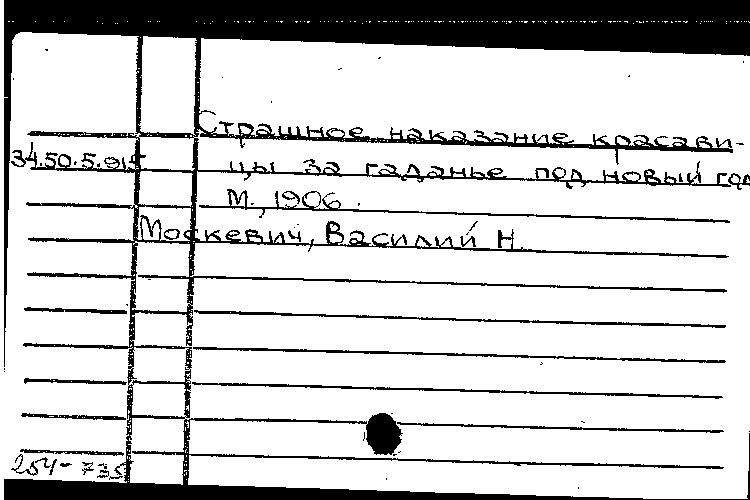 Страшное наказание красави-
34.50.5.915 цы за гаданье под новый год
М., 1906.
Москевич, Василий Н.
254-735